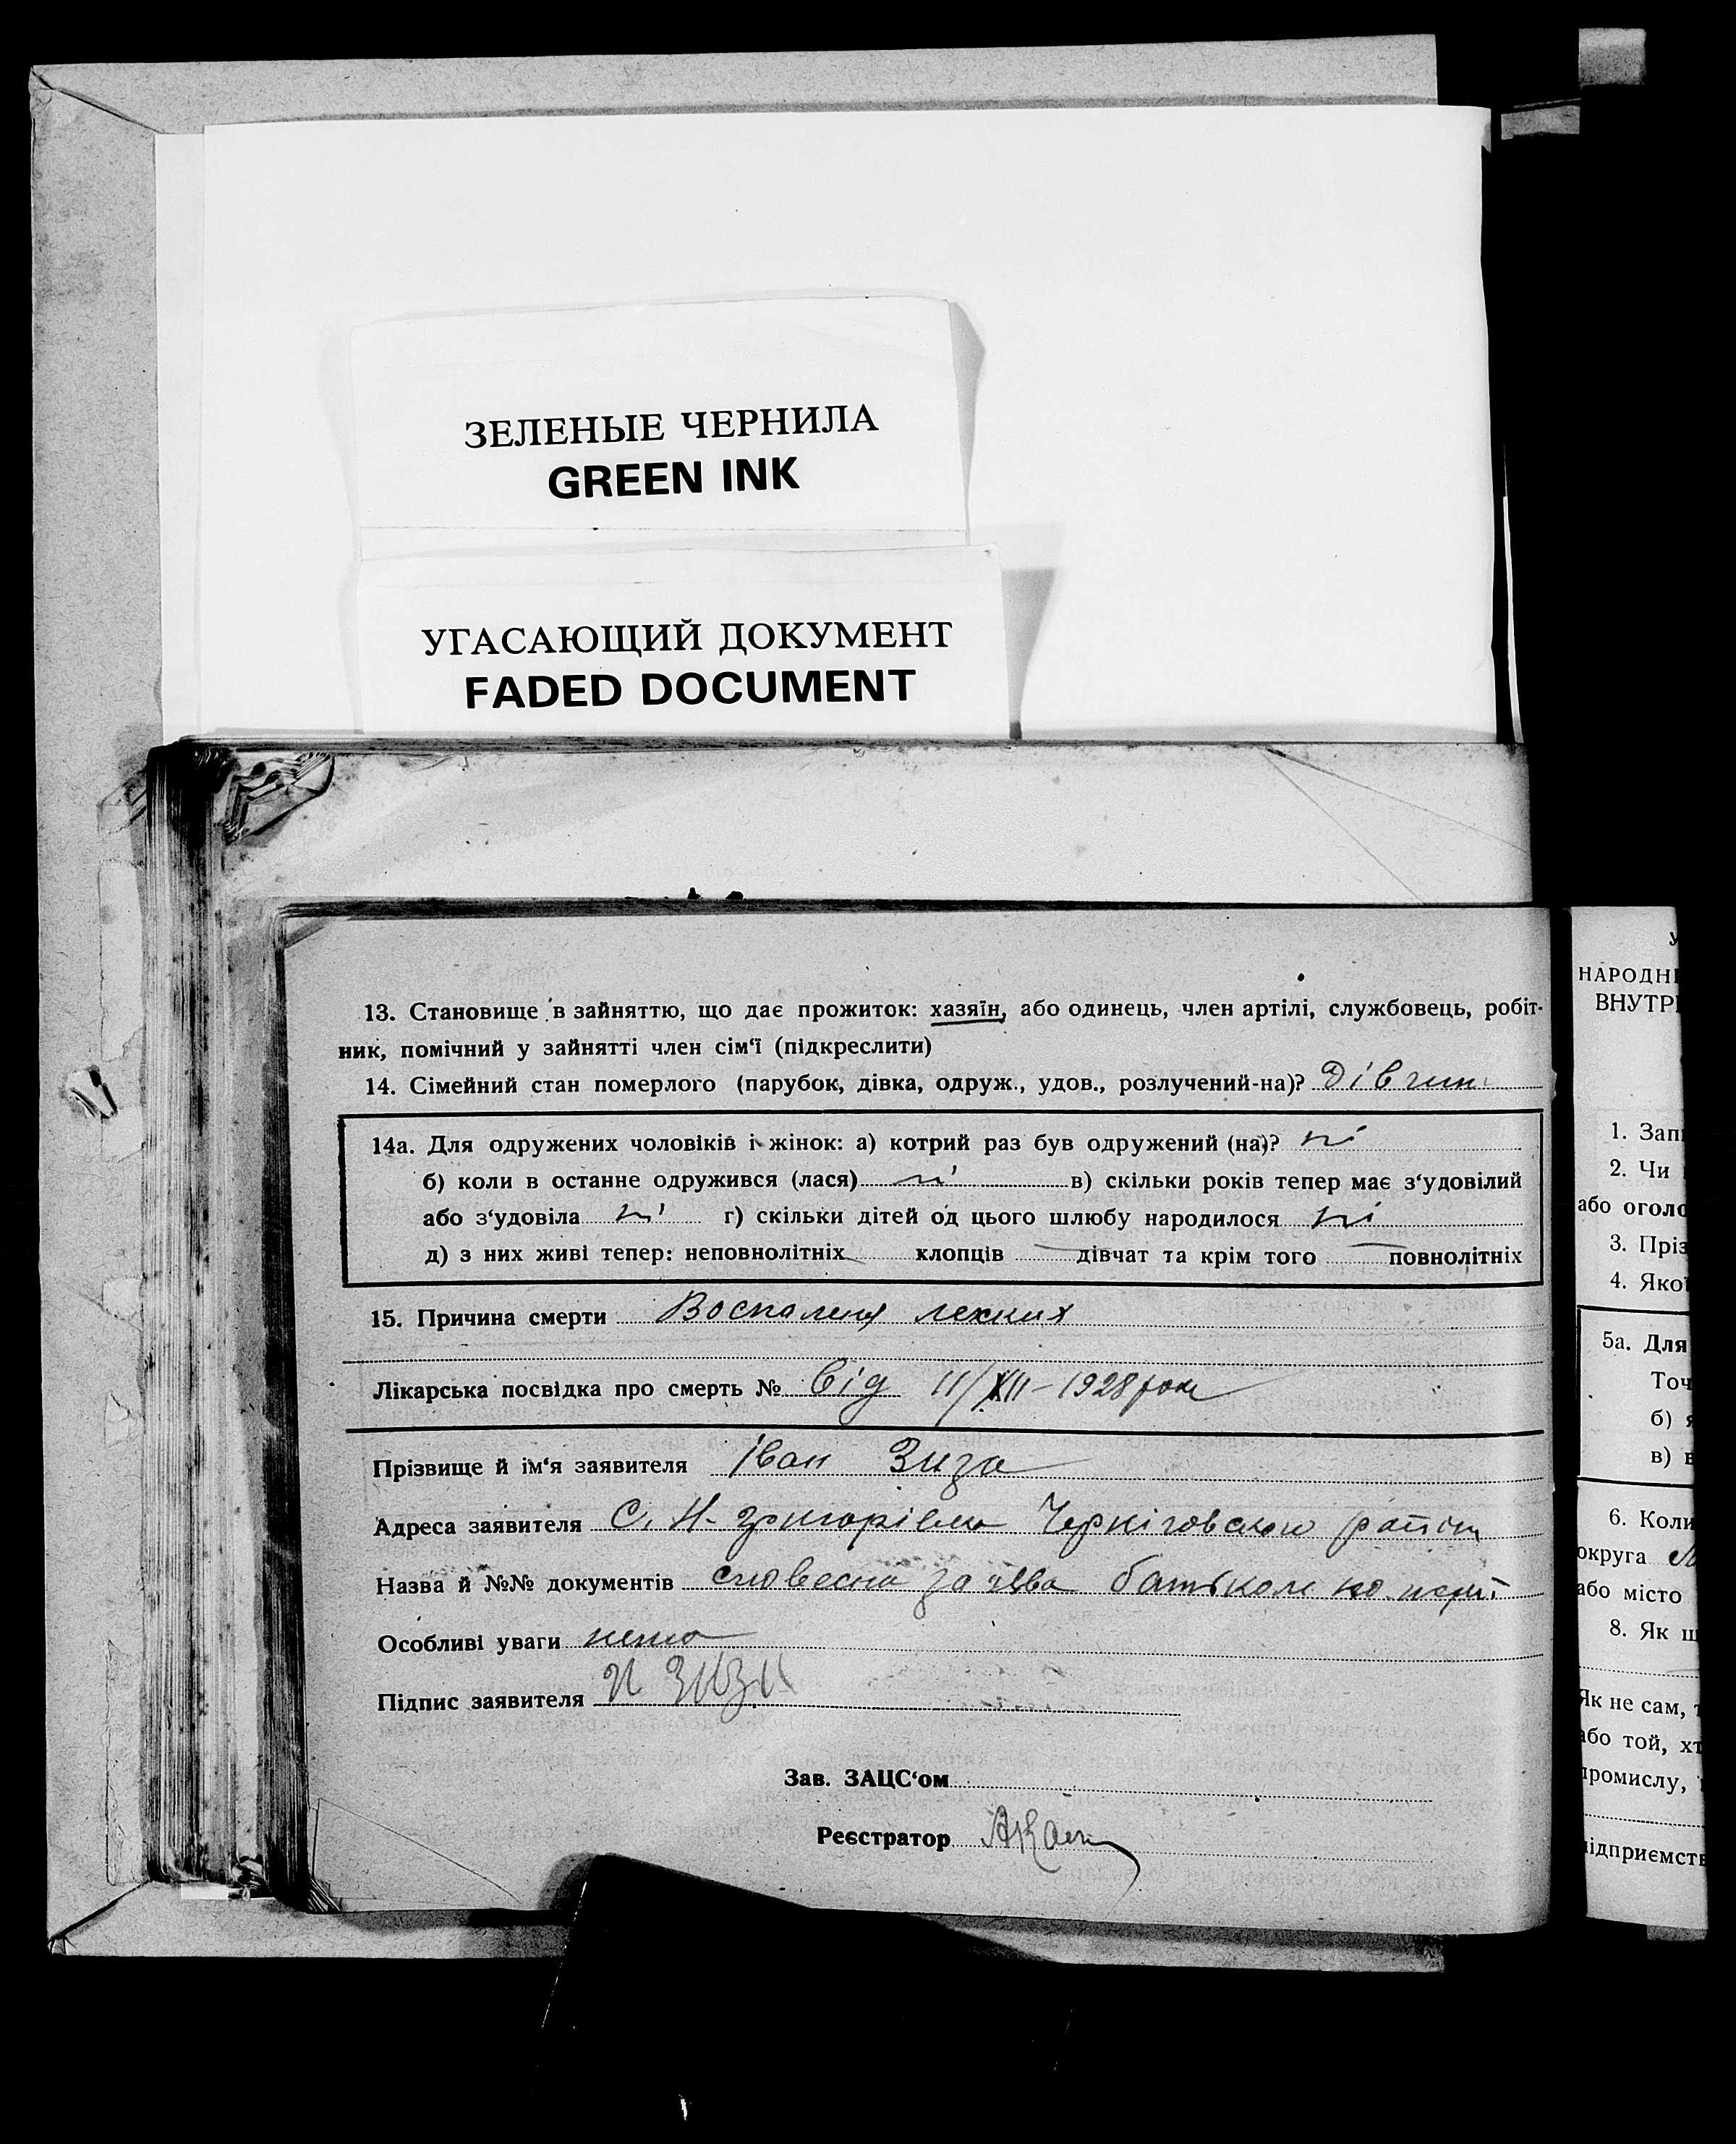 ЗЕЛЕНЫЕ ЧЕРНИЛА
GREEN INK
УГАСАЮЩИЙ ДОКУМЕНТ
FADED DOCUMENT
13. Становище в зайняттю, що дає прожиток: хазяїн, або одинець, член артілі, службовець, робіт-
ник, помічний у зайнятті член сім‘ї (підкреслити)
14. Сімейний стан померлого (парубок, дівка, одруж., удов., розлучений-на)?
14а. Для одружених чоловіків і жінок: а) котрий раз був одружений (на)? ні
б) коли в останне одружився (лася) ні в) скільки років тепер має з‘удовілий
або з‘удовіла ні г) скільки дітей од цього шлюбу народилося ні
д) з них живі тепер: неповнолітніх — хлопців — дівчат та крім того — повнолітніх
15. Причина смерти Воспаленя лехких
Лікарська посвідка про смерть № Від 11/XII – 1928 року
Прізвище й ім‘я заявителя Іван Зиза
Адреса заявителя С. Н-григорівка Черніговського району
Назва й №№ документів словесна заява батьком
Особливі уваги нема
Підпис заявителя И Зизи
Зав. ЗАЦС‘ом
Реєстратор
НАРОДН
ВНУТР
1. Зап
2. Чи
або оголо
3. Пріз
4. Якої
5а. Для
Точ
б) я
в) в
6. Коли
округа
або місто
8. Як щ
Як не сам, т
або той, хт
промислу,
підприємств